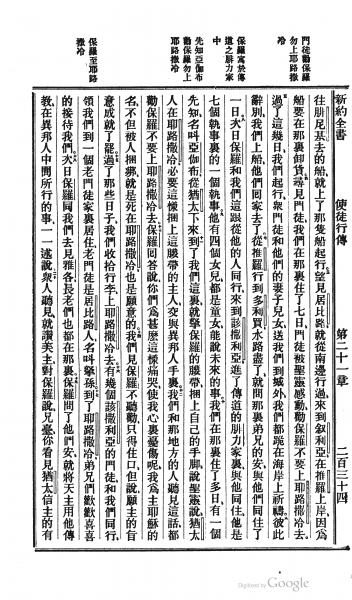 新約全書　使徒行傳　第二十一章　二百三十四
門徒勸保羅
勿上耶路撒
冷
保羅寓於傳
道之腓力家
中
先知亞伽布
勸保羅勿上
耶路撒冷
保羅至耶路
撒冷
往腓尼基去的船、就上了那隻船起行、望見居比路、就從南邊行過、來到敘利亞、在推羅上岸、因爲
船要在那裏卸貨、尋見門徒、我們在那裏住了七日、門徒被聖靈感動、勸保羅不要上耶路撒冷去、
過了這幾日、我們起行、眾門徒和他們的妻子兒女、送我們到城外、我們都跪在海岸上祈禱、彼此
辭別、我們上船、他們回家去了。從推羅行到多利買、水路盡了、就問那裏弟兄的安、與他們同住了
一日、次日保羅和我們這跟從他的人同行、來到該撒利亞、進了傳道的腓力家裏、與他同住、他是
七個執事裏的一個執事、他有四個女兒、都是童女、能說未來的事、我們在那裏住了多日、有一個
先知、名叫亞伽布、從猶太下來、到了我們這裏、就拏保羅的腰帶、捆上自己的手脚、說、聖靈說、猶太
人在耶路撒冷、必要這樣捆上這腰帶的主人、交與異邦人手裏、我們和那地方的人聽見這話、都
勸保羅不要上耶路撒冷去。保羅回答說、你們爲甚麽這樣痛哭、使我心裏憂傷呢、我爲主耶穌的
名、不但被人捆綁、就是死在耶路撒冷、也是願意的、我們見保羅不聽勸、只得住口、但說願主的旨
意成就了罷。過了那些日子、我們收拾行李、上耶路撒冷去、有幾個該撒利亞的門徒、和我們同行、
領我們到一個老門徒家裏居住、老門徒是居比路人、名叫拏孫、到了耶路撒冷、弟兄們歡歡喜喜
的接待我們、次日保羅同我們去見雅各、長老們也都在那裏、保羅問了他們安、就將天主用他傳
教、在異邦人中間所行的事、一一述說、眾人聽見、就讚美主、對保羅說、兄臺、你看見猶太信主的有
Digitized by Google